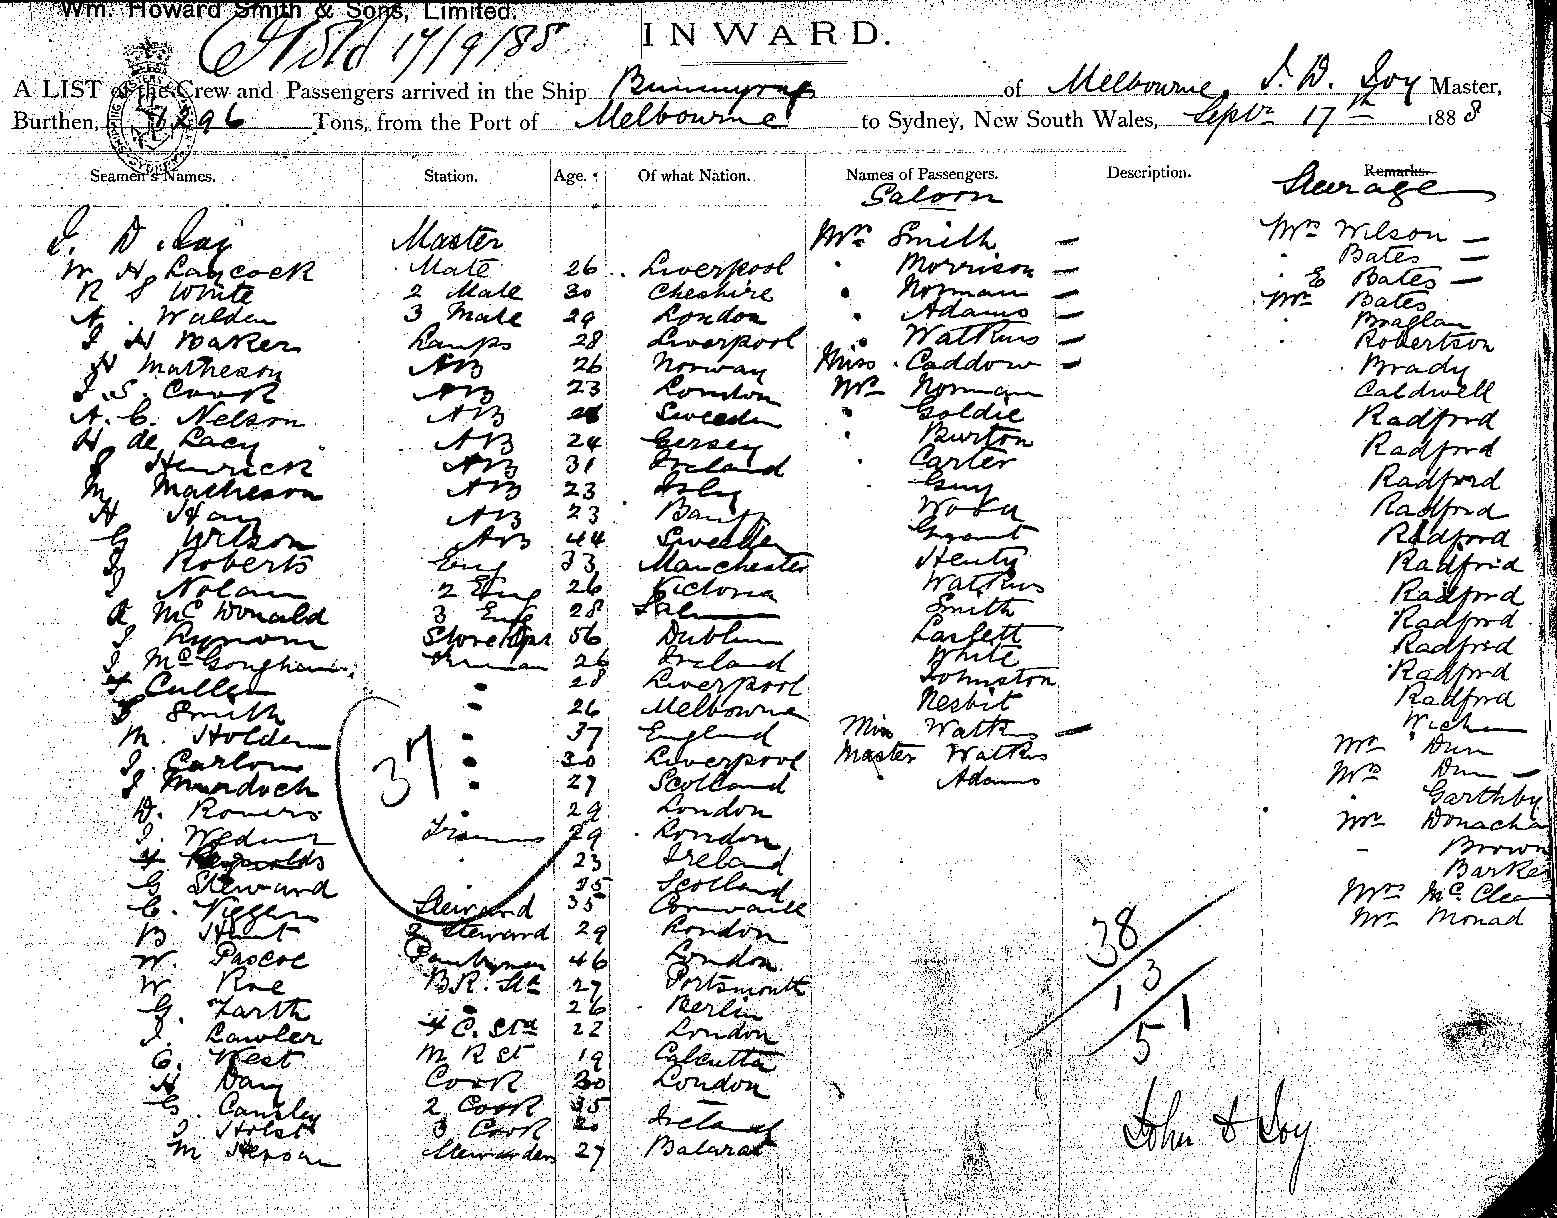 Wm. Howard Smith & Sons, Limited.
17/9/88
INWARD.
A LIST of the Crew and Passengers arrived in the Ship Burrumyong of Melbourne, J. D. Joy Master,
Burthen, Tons, from the Port of Melbourne to Sydney, New South Wales, Septr 17th 1888
Seamen's Names. Station. Age. Of what Nation. Names of Passengers. Description. Remarks.
Saloon Steerage
J. D. Joy Master Mrs Smith Mrs Wilson
W H Laycock Mate 26 Liverpool Morrison Bates
R S White 2 Mate 30 Cheshire Norman E Bates
A. Walden 3 Mate 29 London Adams Mr Bates
J H Baker Lamps 28 Liverpool Watkins Robertson
H Matheson AB 26 Norway Miss Caddow Brady
J. S. Cook AB 23 London Mr Norman Caldwell
A. C. Nelson AB Sweden Goldie Radford
H de Lacy AB 24 Jersey Burton Radford
Henrick AB 31 Ireland Carter Radford
M Matheson AB 23 Guy Radford
H Hay AB 23 Banff Radford
G Wilson AB 44 Sweden Grant Radford
J Roberts Eng 33 Manchester Henty Radford
J Nolan 2 Eng 26 Victoria Watkins Radford
A McDonald 3 Eng 28 Smith Radford
J 56 Dublin Radford
J 26 Ireland White Radford
Cullen 28 Liverpool Johnston Wich
Smith 26 Melbourne Nesbit Mr Dun
M. Holden 37 England Miss Watkins Mrs Dun
J. Carlow 30 Liverpool Master Watkins Garthby
J Murdoch 27 Scotland Adams Mr Donacha
D. 29 London Brown
J. 29 London Barker
Reynolds 23 Ireland Mrs McClea
G Steward Scotland Mr Monad
C. Steward 35 Cornwall
B Hunt 2 Steward 29 London
W. Pascoe Pantryman 46 London
W Roe B.R. Std 27 Portsmouth
G. Zarth 26 Berlin
J. Lawler F C. Std 22 London
C. West M R St 19 Calcutta
H Day Cook 30 London
G. Cansley 2 Cook
J Holst 3 Cook 20 Ireland
M Stewardess 27 Balarat
37
38
13
51
John D Joy